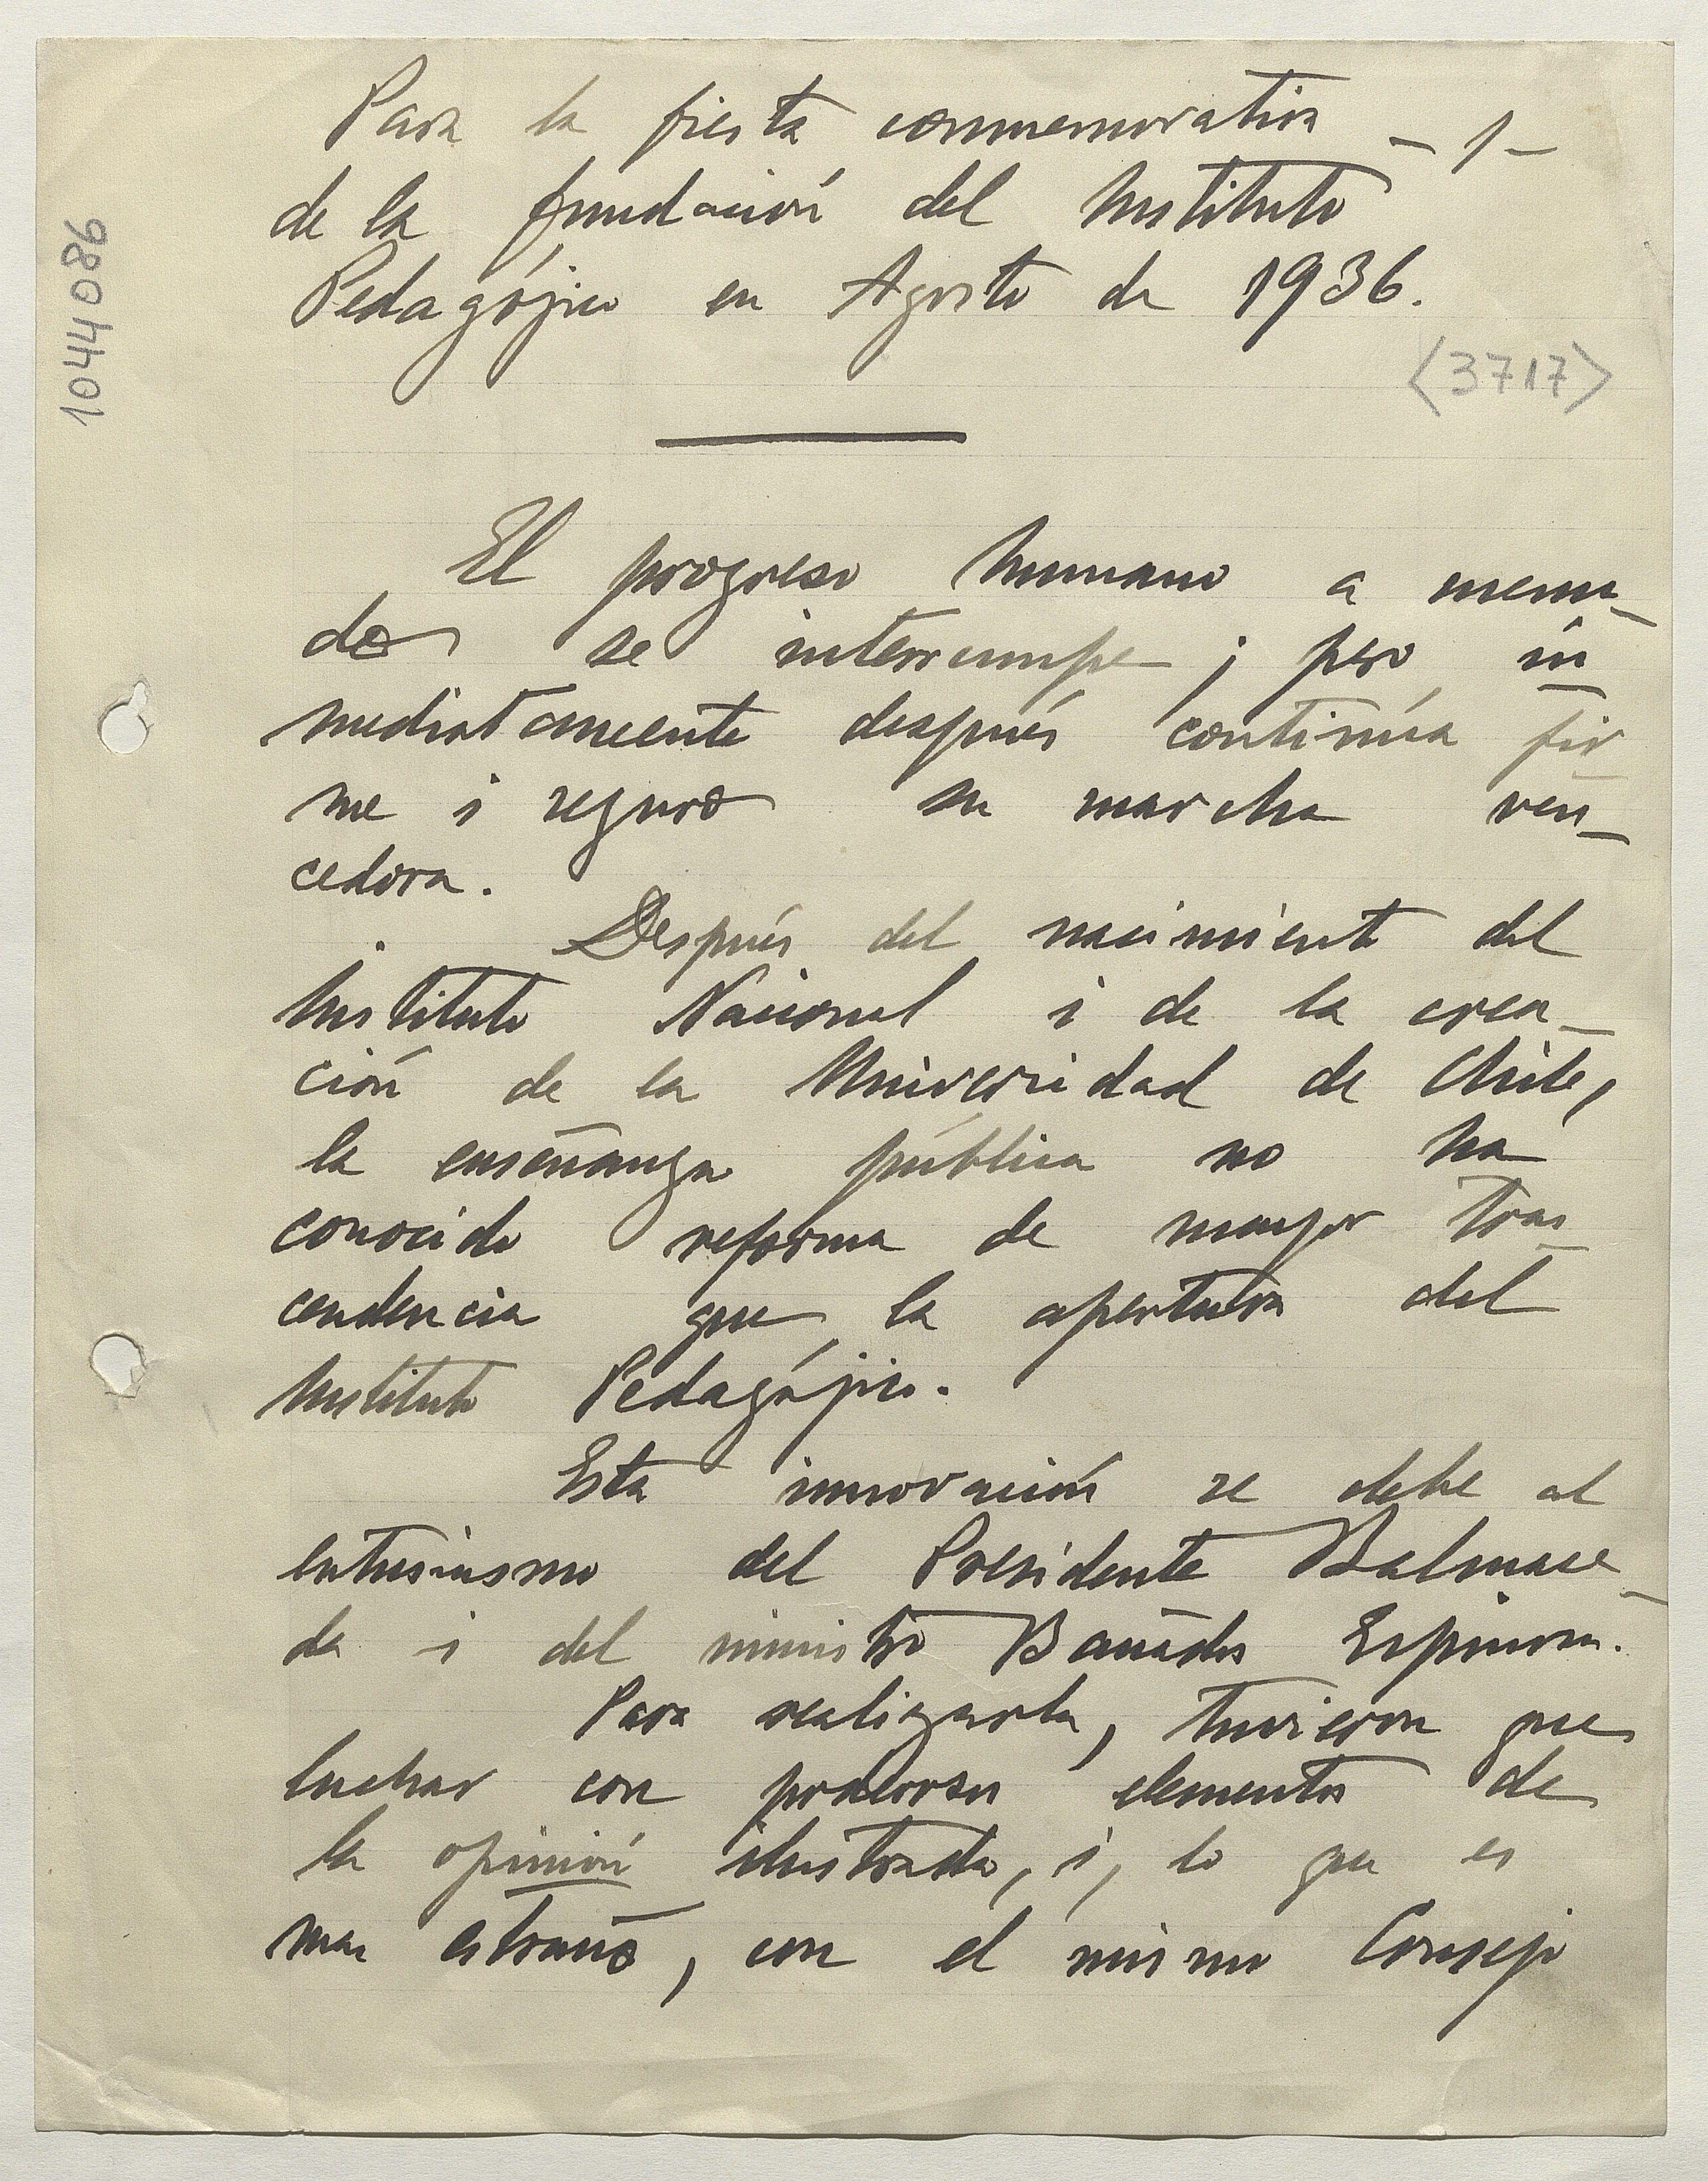 Para la fiesta conmemorativa - 1 -
de la fundación del Instituto
Pedagójico en Agosto de 1936.
<3717>
1044086
El progreso humano a menu-
do se interrumpe; pero in-
mediatamente después continúa fir-
me i seguro su marcha ven-
cedora.
Después del nacimiento del
Instituto Nacional i de la crea-
ción de la Universidad de Chile,
la enseñanza pública no ha
conocido reforma de mayor tras-
cendencia que la apertura del
Instituto Pedagójico.
Esta innovación se debe al
entusiasmo del Presidente Balmace-
da i del ministro Bañados Espinosa.
Para realizarla, tuvieron que
luchar con poderosos elementos de
la opinión ilustrada, i, lo que es
mas estraño, con el mismo Consejo